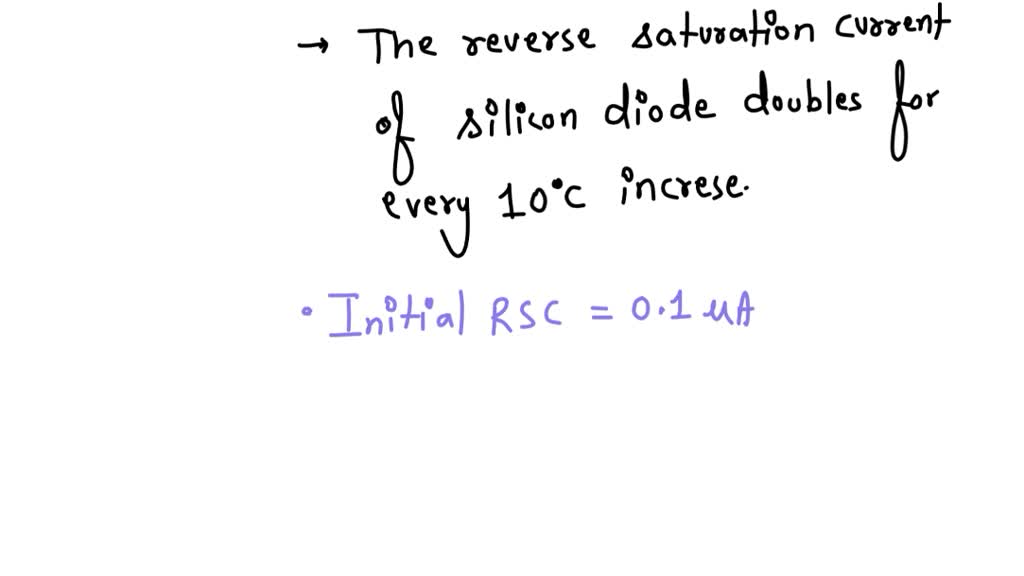 → The reverse saturation current
of silicon diode doubles for
every 10°C increse.
• Initial RSC = 0.1 uA